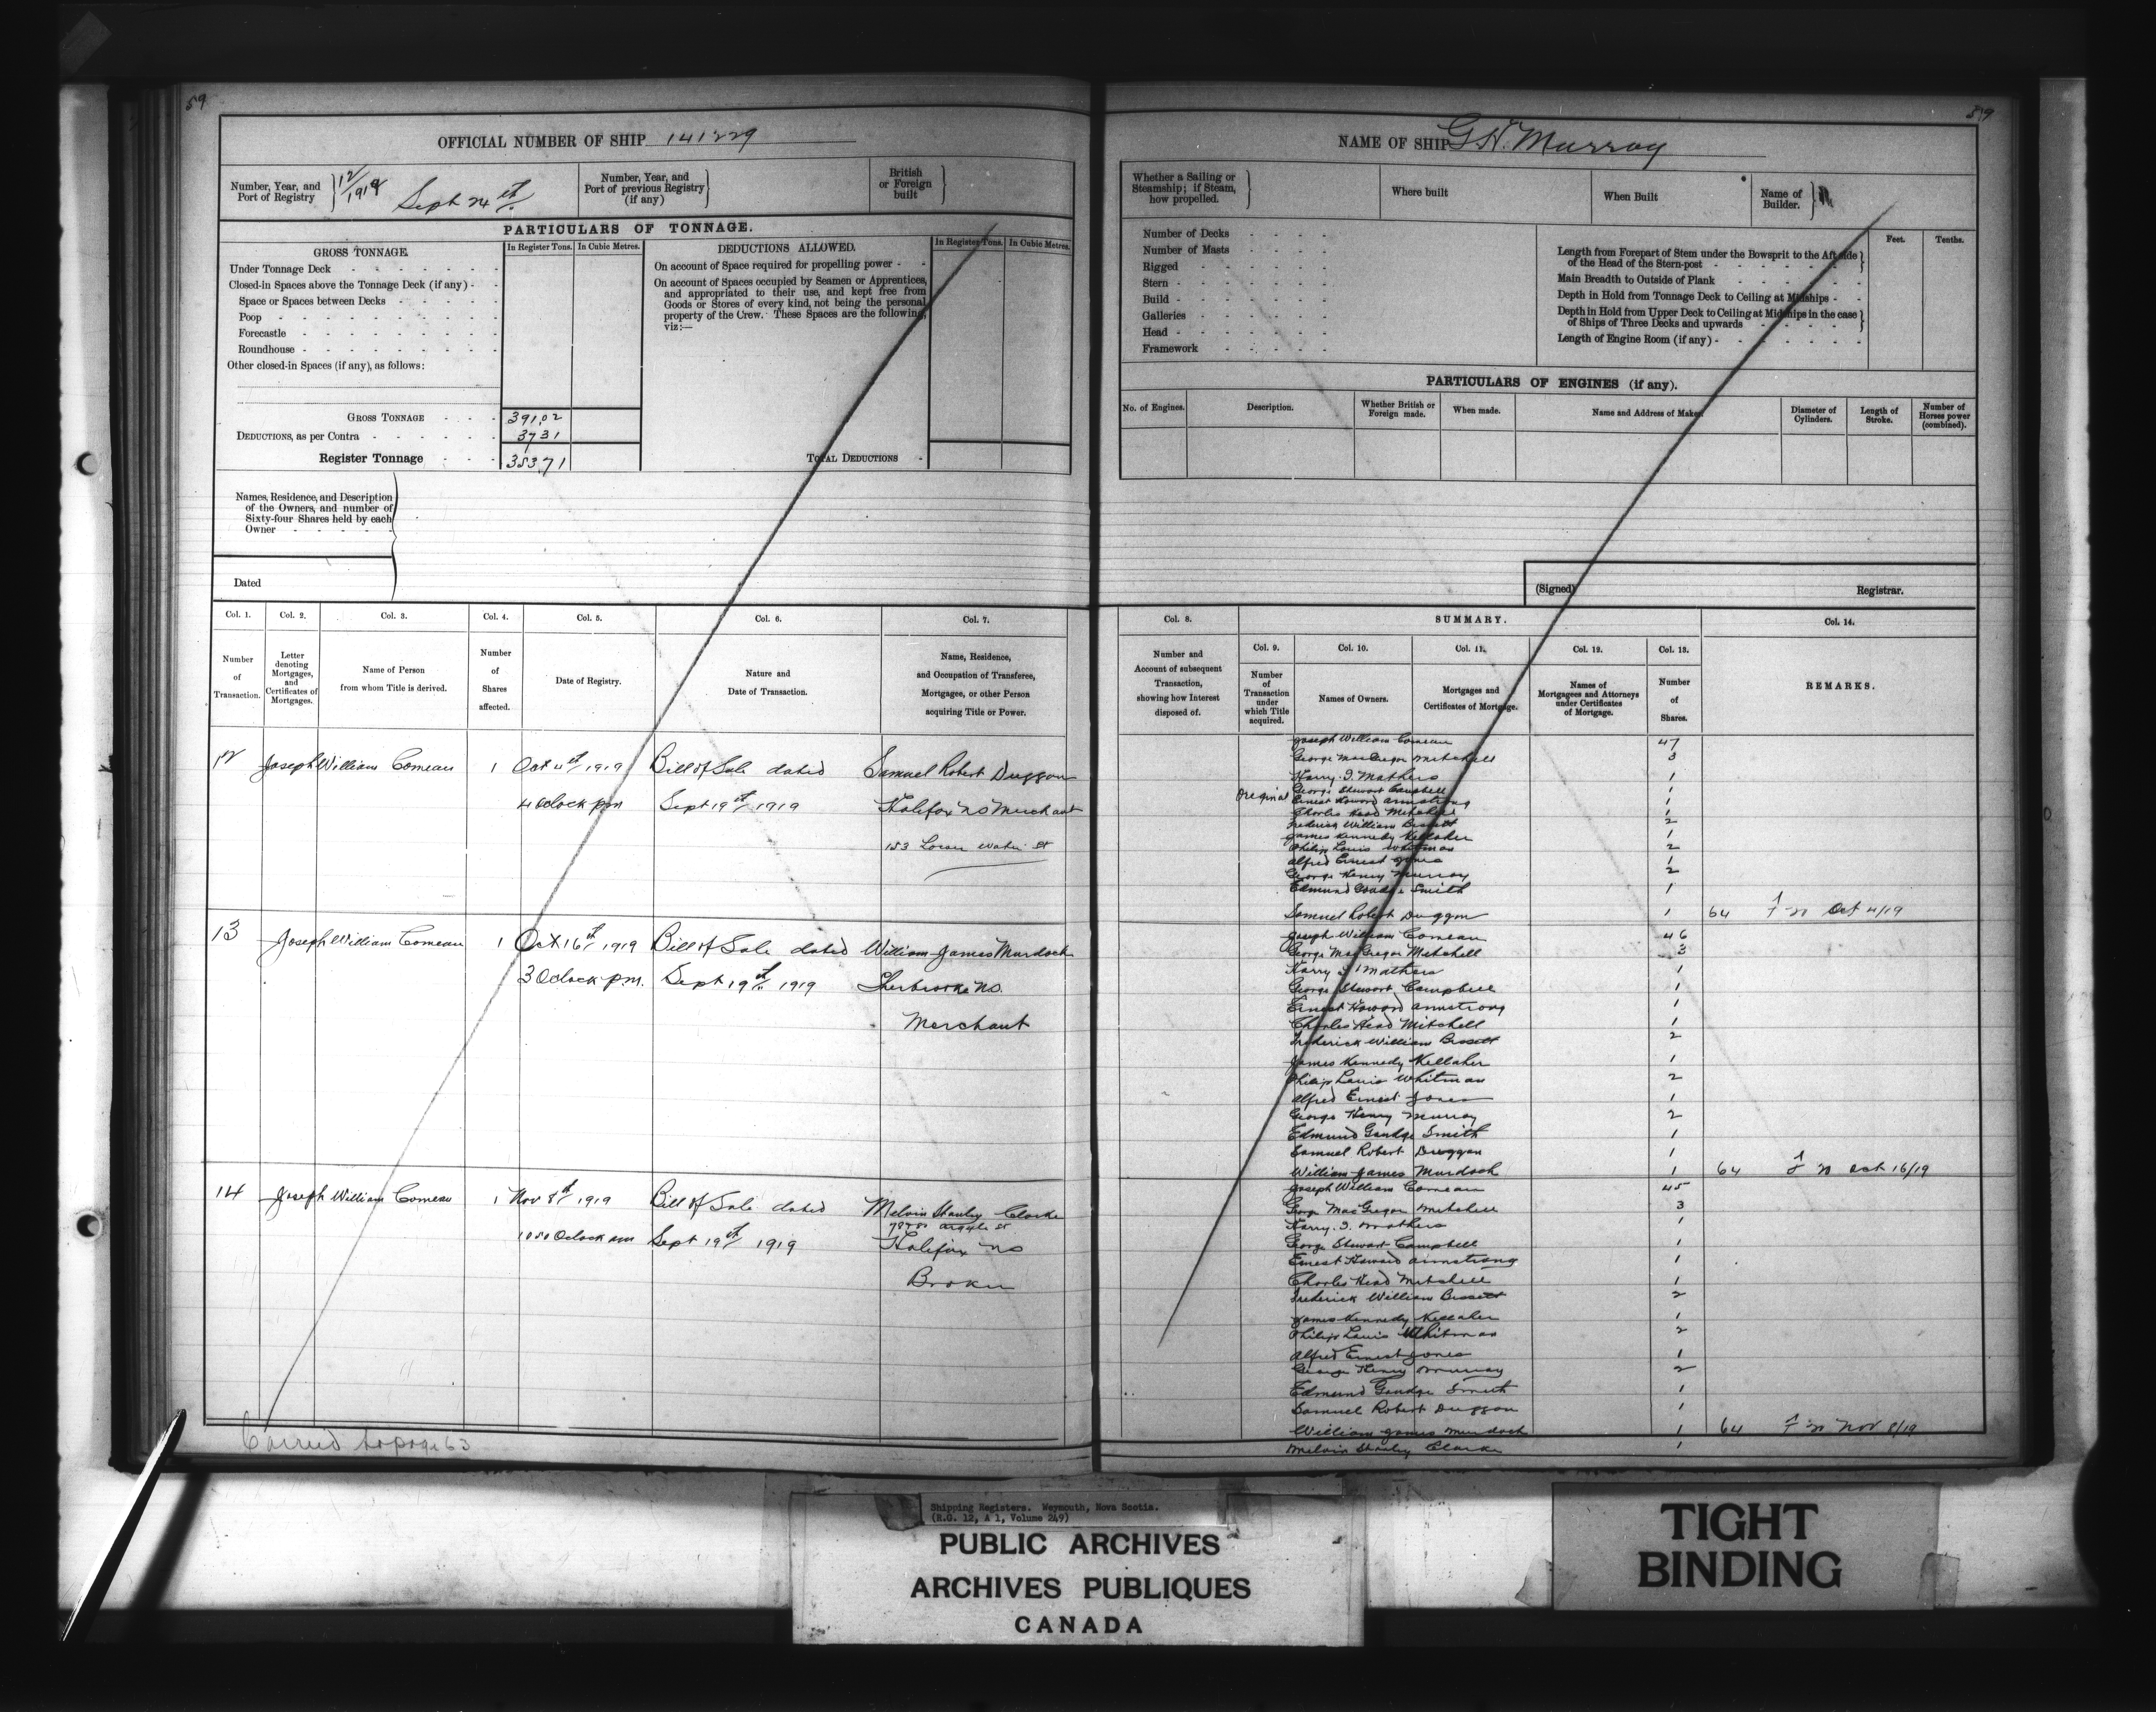 59
OFFICIAL NUMBER OF SHIP 141229
Number, Year, and Port of Registry } 12/1919 Sept 24th
Number, Year, and Port of previous Registry (if any) }
British or Foreign built }
PARTICULARS OF TONNAGE.
GROSS TONNAGE.
In Register Tons. In Cubic Metres.
Under Tonnage Deck
Closed-in Spaces above the Tonnage Deck (if any)
Space or Spaces between Decks
Poop
Forecastle
Roundhouse
Other closed-in Spaces (if any), as follows:
GROSS TONNAGE 391,02
DEDUCTIONS, as per Contra 3731
Register Tonnage 353,71
DEDUCTIONS ALLOWED.
In Register Tons. In Cubic Metres.
On account of Space required for propelling power
On account of Spaces occupied by Seamen or Apprentices, and appropriated to their use, and kept free from Goods or Stores of every kind, not being the personal property of the Crew. These Spaces are the following, viz:—
TOTAL DEDUCTIONS
Names, Residence, and Description of the Owners, and number of Sixty-four Shares held by each Owner
Dated
Col. 1. Col. 2. Col. 3. Col. 4. Col. 5. Col. 6. Col. 7.
Number of Transaction.
Letter denoting Mortgages, and Certificates of Mortgages.
Name of Person from whom Title is derived.
Number of Shares affected.
Date of Registry.
Nature and Date of Transaction.
Name, Residence, and Occupation of Transferee, Mortgagee, or other Person acquiring Title or Power.
12 Joseph William Comeau 1 Oct 4th 1919 Bill of Sale dated Samuel Robert Duggan
4 Oclock pm Sept 19th 1919 Halifax NS Merchant
153 Lower Water St
13 Joseph William Comeau 1 Oct 16th 1919 Bill of Sale dated William James Murdock
3 Oclock p.m. Sept 19th 1919 Sherbrooke NS.
Merchant
14 Joseph William Comeau 1 Nov 8th 1919 Bill of Sale dated Melvin Stanley Clarke
Argyle St
Oclock am Sept 19th 1919 Halifax NS
Broker
Carried to page 63
59
NAME OF SHIP G.H. Murray
Whether a Sailing or Steamship; if Steam, how propelled. }
Where built
When Built
Name of Builder. }
Number of Decks
Number of Masts
Rigged
Stern
Build
Galleries
Head
Framework
Feet. Tenths.
Length from Forepart of Stem under the Bowsprit to the Aft side of the Head of the Stern-post
Main Breadth to Outside of Plank
Depth in Hold from Tonnage Deck to Ceiling at Midships
Depth in Hold from Upper Deck to Ceiling at Midships in the case of Ships of Three Decks and upwards
Length of Engine Room (if any)
PARTICULARS OF ENGINES (if any).
No. of Engines. Description. Whether British or Foreign made. When made. Name and Address of Maker. Diameter of Cylinders. Length of Stroke. Number of Horses power (combined).
(Signed) Registrar.
Col. 8. SUMMARY. Col. 14.
Col. 9. Col. 10. Col. 11. Col. 12. Col. 13.
Number and Account of subsequent Transaction, showing how Interest disposed of.
Number of Transaction under which Title acquired.
Names of Owners.
Mortgages and Certificates of Mortgage.
Names of Mortgagees and Attorneys under Certificates of Mortgage.
Number of Shares.
REMARKS.
Joseph William Comeau 47
George MacGregor Mitchell 3
Harry I. Mathers 1
Original George Stewart Campbell 1
Ernest Howard Armstrong 1
Charles Head Mitchell 1
Frederick William Bissett 2
James Kennedy Kellaher 1
Philip Louis Whitman 2
Alfred Ernest Jones 1
George Henry Murray 2
Edmund Goudge Smith 1
Samuel Robert Duggan 1 64 Oct 4/19
Joseph William Comeau 46
George MacGregor Mitchell 3
Harry I Mathers 1
George Stewart Campbell 1
Ernest Howard Armstrong 1
Charles Head Mitchell 1
Frederick William Bissett 2
James Kennedy Kellaher 1
Philip Louis Whitman 2
Alfred Ernest Jones 1
George Henry Murray 2
Edmund Goudge Smith 1
Samuel Robert Duggan 1
William James Murdock 1 64 Oct 16/19
Joseph William Comeau 45
George MacGregor Mitchell 3
Harry. I. Mathers 1
George Stewart Campbell 1
Ernest Howard Armstrong 1
Charles Head Mitchell 1
Frederick William Bissett 2
James Kennedy Kellaher 1
Philip Louis Whitman 2
Alfred Ernest Jones 1
George Henry Murray 2
Edmund Goudge Smith 1
Samuel Robert Duggan 1
William James Murdock 1 64 Nov 8/19
Melvin Stanley Clarke 1
Shipping Registers. Weymouth, Nova Scotia.
(R.G. 12, A 1, Volume 249)
PUBLIC ARCHIVES
ARCHIVES PUBLIQUES
CANADA
TIGHT
BINDING